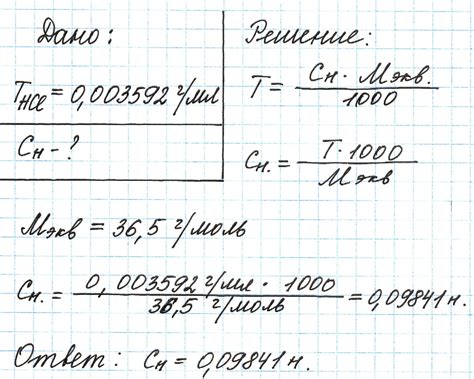 Дано:
T_HCl = 0,003592 г/мл
Cн - ?
Решение:
T = Cн · Mэкв. / 1000
Cн. = T · 1000 / Mэкв
Mэкв = 36,5 г/моль
Cн. = 0,003592 г/мл · 1000 / 36,5 г/моль = 0,09841 н.
Ответ: Cн = 0,09841 н.